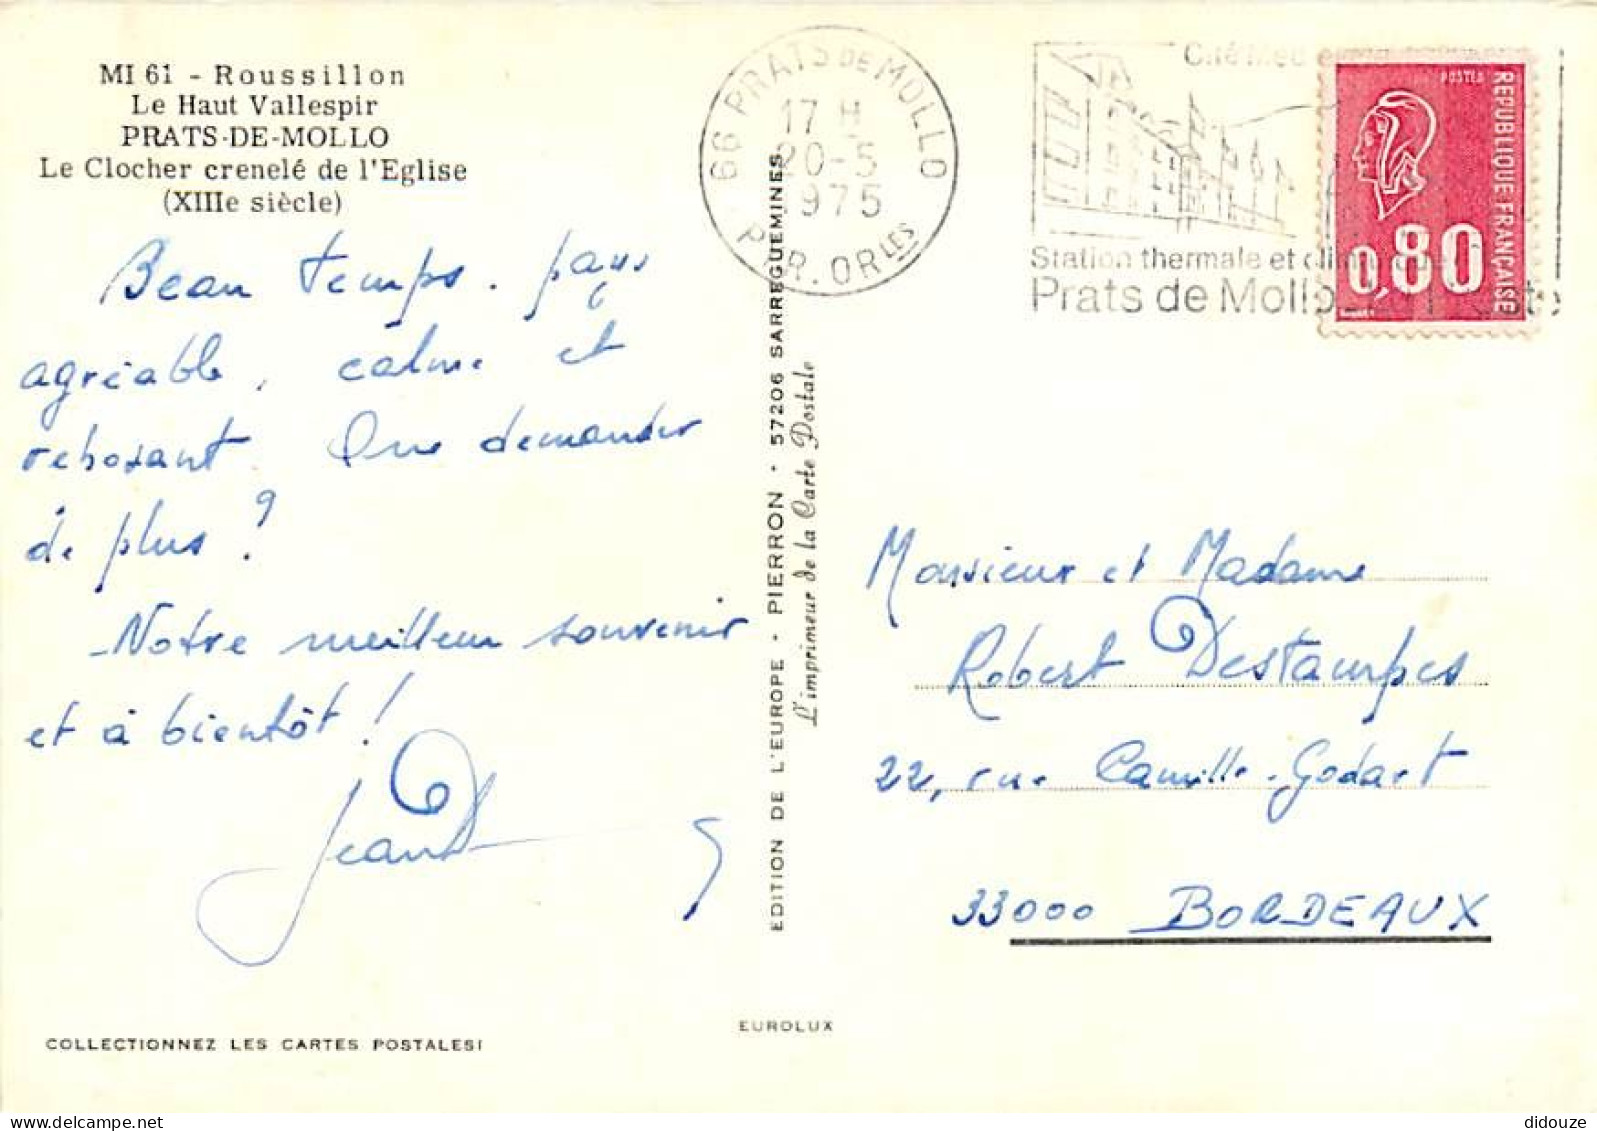 MI 61 - Roussillon
Le Haut Vallespir
PRATS-DE-MOLLO
Le Clocher crenelé de l'Eglise
(XIIIe siècle)
Beau temps. pays
agréable, calme et
reposant. Que demander
de plus ?
Notre meilleur souvenir
et à bientôt !
Jean
COLLECTIONNEZ LES CARTES POSTALES!
EDITION DE L'EUROPE - PIERRON - 57206 SARREGUEMINES
L'imprimeur de la Carte Postale
EUROLUX
66 PRATS DE MOLLO
17 H
20-5
1975
PYR. ORLES
Station thermale et
Prats de Mollo
POSTES
REPUBLIQUE FRANÇAISE
0,80
Monsieur et Madame
Robert Destampes
22, rue Camille-Godart
33000 BORDEAUX
didouze